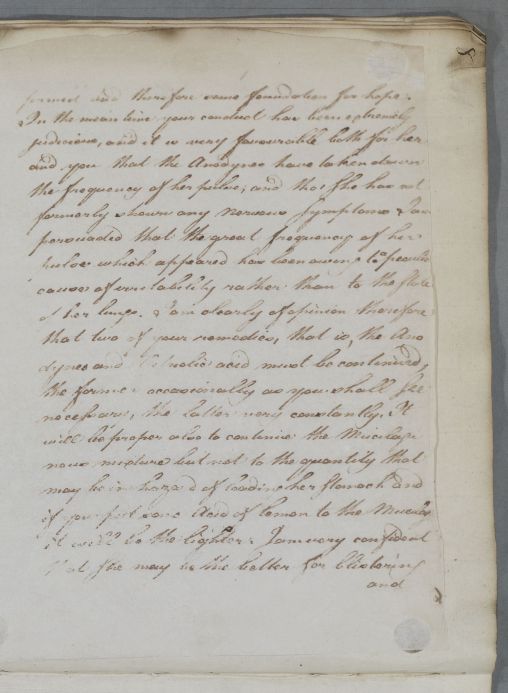 formed and therefore some foundation for hope.
In the mean time your conduct has been extremely
judicious, and it is very favourable both for her
and you that the Anodynes have taken down
the frequency of her pulse; and that She has not
formerly shown any nervous Symptoms I am
persuaded that the great frequency of her
pulse which appeared has been owing to a peculiar
cause of irritability rather than to the State
of her lungs. I am clearly of opinion therefore
that two of your remedies, that is, the Ano
dynes and Vitriolic acid must be continued,
the former occasionally as you shall See
necessary, the latter very constantly. It
will be proper also to continue the Mucilagi
nous mixture but not to the quantity that
may be in hazard of loading her Stomach and
if you put some Acid of lemon to the Mucilage
it will be the lighter. I am very confident
that She may be the better for blistering
and